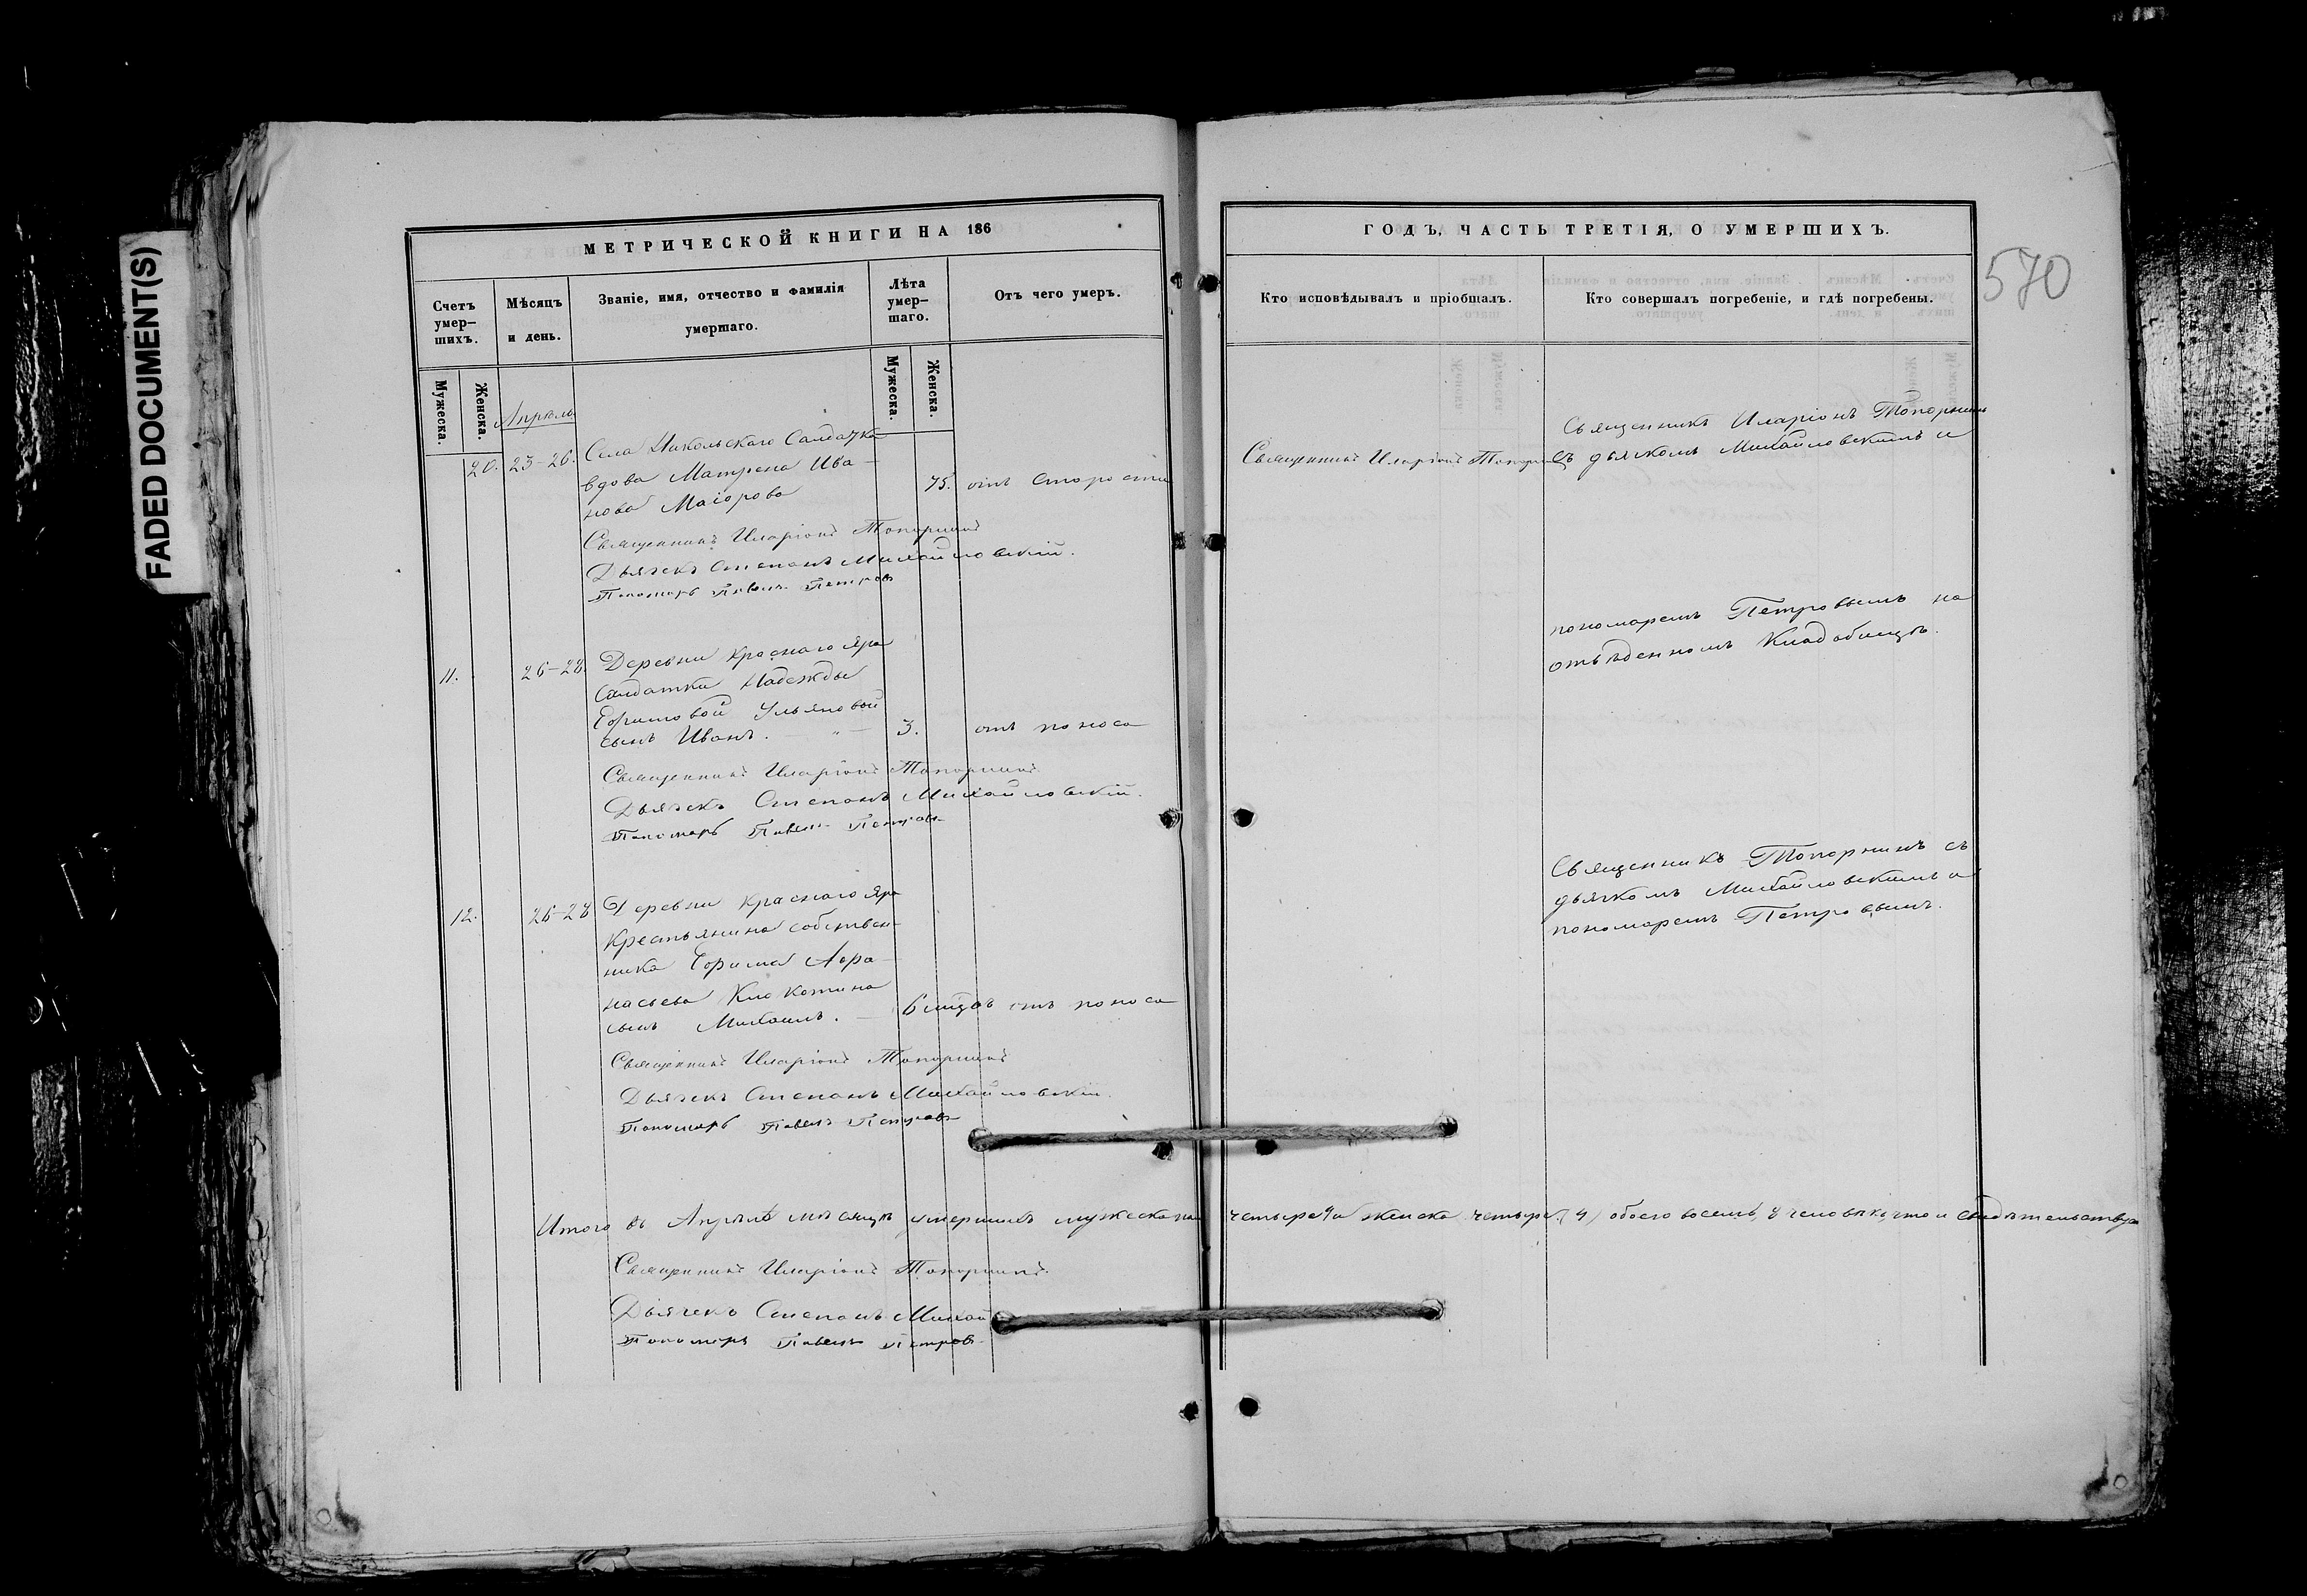 FADED DOCUMENT(S)
МЕТРИЧЕСКОЙ КНИГИ НА 186
Счетъ умер-
шихъ.
Мѣсяцъ
и день.
Званіе, имя, отчество и фамилія
умершаго.
Лѣта
умер-
шаго.
Отъ чего умеръ.
Мужеска.
Женска.
Мужеска.
Женска.
Апрѣль
20. 23-26. Села Никольскаго Салдатка
вдова Матрена Ива-
нова Маіорова 75. отъ старости
Священникъ Иларіонъ Топорнинъ
Дьячекъ Степанъ Михайловскій.
Пономарь Павелъ Петровъ
11. 26-28. Деревни Краснаго Яра
Салдатки Надежды
Ефимовой Ульяновой
сынъ Иванъ. 3. отъ поноса
Священникъ Иларіонъ Топорнинъ
Дьячекъ Степанъ Михайловскій.
Пономарь Павелъ Петровъ
12. 26-28 Деревни Краснаго Яра
Крестьянина собствен-
ника Ефима Афа-
насьева
сынъ Михаилъ. 6 отъ поноса
Священникъ Иларіонъ Топорнинъ
Дьячекъ Степанъ Михайловскій.
Пономарь Павелъ Петровъ
Итого въ Апрѣлѣ мѣсяцѣ умершихъ мужеска пола четыре 4 и женска четыре (4) обоего восемь, 8 человѣкъ, что и свидѣтельствуемъ
Священникъ Иларіонъ Топорнинъ.
Дьячекъ Степанъ Михай
Пономарь Павелъ Петровъ
ГОДЪ, ЧАСТЬ ТРЕТІЯ, О УМЕРШИХЪ.
570
Кто исповѣдывалъ и пріобщалъ.
Кто совершалъ погребеніе, и гдѣ погребены.
Священникъ Иларіонъ Топорнинъ
Священникъ Иларіонъ Топорнинъ
съ дьячкомъ Михайловскимъ и
пономаремъ Петровымъ на
отведенномъ Кладобищѣ.
Священникъ Топорнинъ съ
дьячкомъ Михайловскимъ и
пономаремъ Петровымъ.